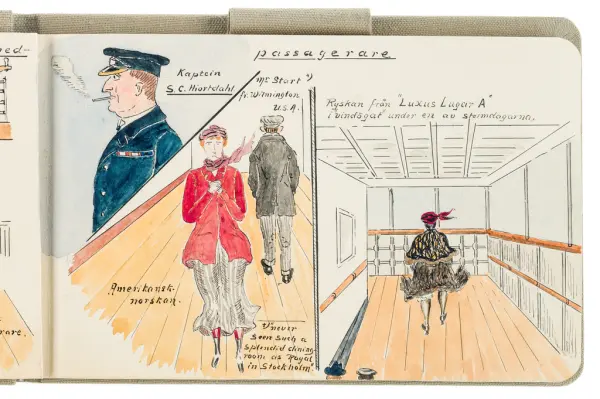 ed-
passagerare
Kaptein
S. C. Hiortdahl
Mr Start
fr. Wilmington
U.S.A.
Ryskan från "Luxus Lugar A"
i vindsgat" under en av stormdagarna.
Amerikansk-
norskan.
I never
seen such a
splendid dining-
room as "Royal
in Stockholm".
rare.